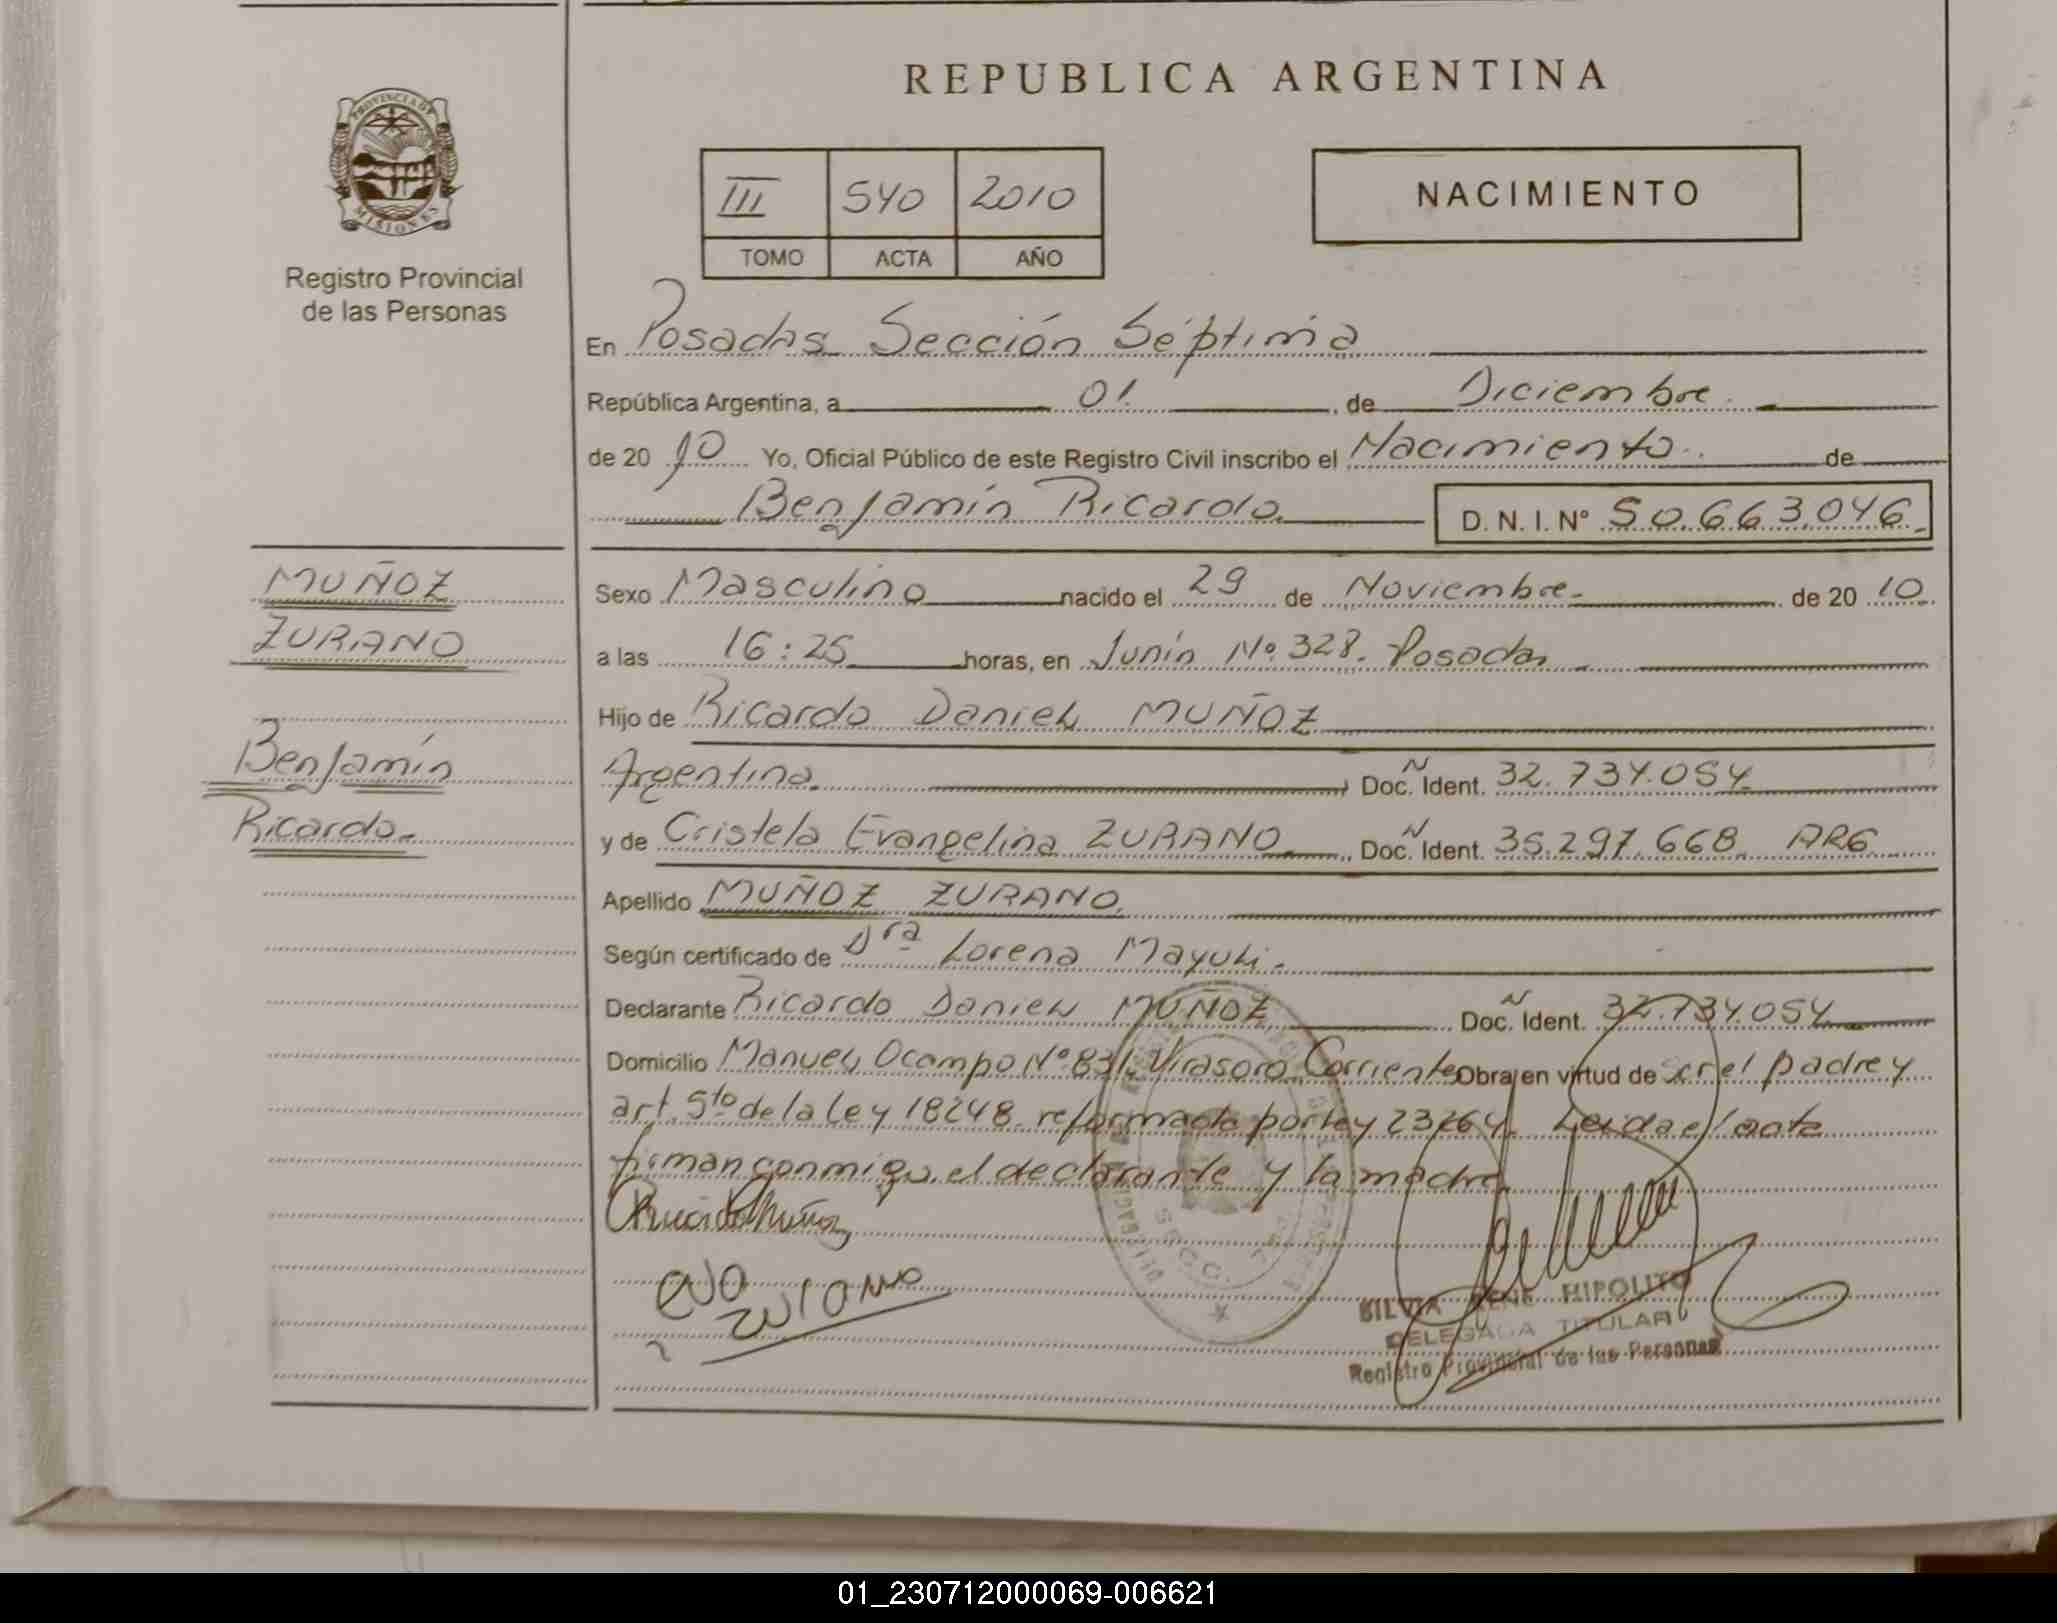 REPUBLICA ARGENTINA
PROVINCIA DE
MISIONES
Registro Provincial
de las Personas
III 540 2010
TOMO ACTA AÑO
NACIMIENTO
En Posadas Sección Séptima
República Argentina, a 01 , de Diciembre
de 20 10 Yo, Oficial Público de este Registro Civil inscribo el Nacimiento de
Benjamín Ricardo D. N. I. Nº 50.663.046
MUÑOZ
ZURANO
Benjamín
Ricardo.
Sexo Masculino nacido el 29 de Noviembre de 20 10
a las 16:25 horas, en Junín Nº 328. Posadas
Hijo de Ricardo Daniel MUÑOZ
Argentina. Doc. Ident. 32.734.054
y de Cristela Evangelina ZURANO Doc. Ident. 35.297.668 ARG
Apellido MUÑOZ ZURANO.
Según certificado de Dra Lorena Mayuli.
Declarante Ricardo Daniel MUÑOZ Doc. Ident. 32.734.054
Domicilio Manuel Ocampo Nº 831, Virasoro Corrientes Obra en virtud de ser el padre y
art. 5to de la Ley 18248 reformada por ley 23264. Leida el acta
firman conmigo, el declarante y la madre
Muñoz
Zurano
SILVIA RENE HIPOLITO
DELEGADA TITULAR
Registro Provincial de las Personas
01_230712000069-006621